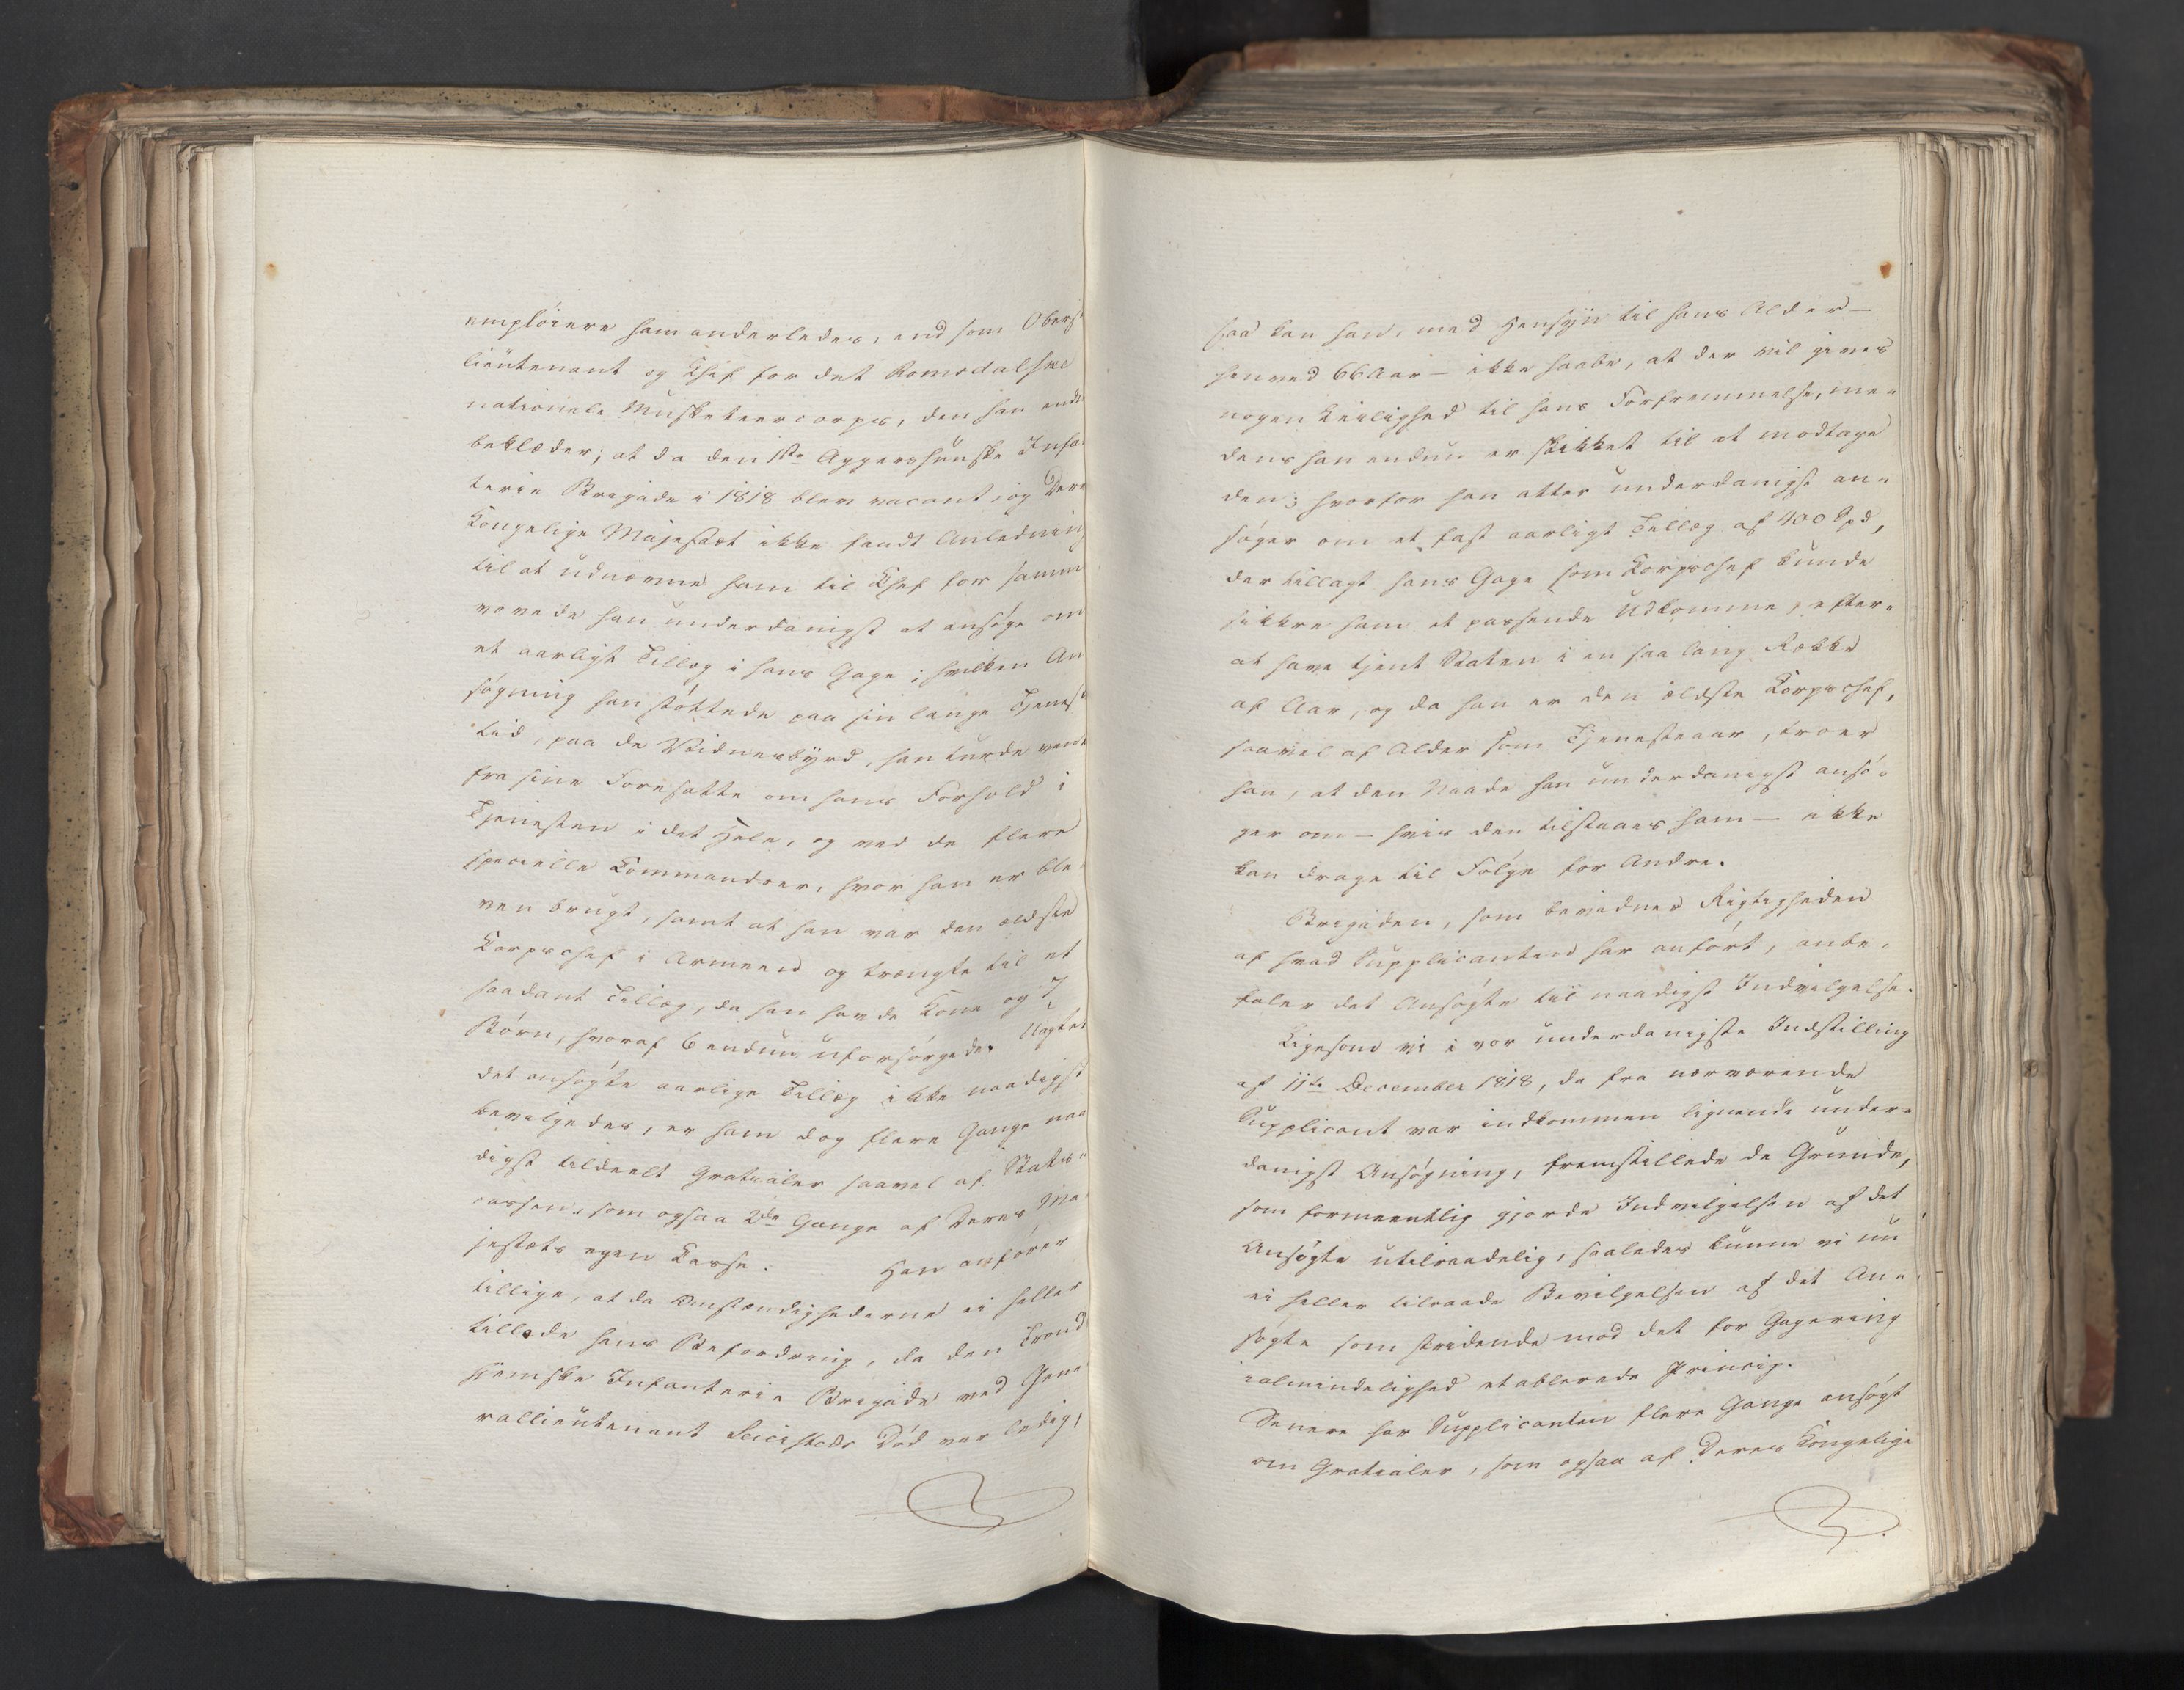 emplóiere ham anderledes, end som Oberst
lieutenant og Chef for det Romsdalske
nationale Musketeercorps, den han endn
beklæder; at da den 1ste Aggershuuske Infa
terie Brigade i 1818 blev vacant, og Dere
Kongelige Majestæt ikke fandt Anledning
til at udnævne ham til Chef for samm
vovede han underdanigst at ansøge om
et aarligt Tillæg i hans Gage; hvilken An
søgning han støttede paa sin lange Tjenest
tid, paa de Vidnesbyrd, han turde vent
fra sine Foresatte om hans Forhold i
Tjenesten i det Hele, og ved de flere
specielle Commandoer, hvor han er ble-
ven brugt, samt at han var den ældste
Korpschef i Armeen og trængte til et
saadant Tillæg, da han havde Kone og 7
Børn, hvoraf 6 endnu uforsørgede. Uagtet
det ansøgte aarlige Tillæg ikke naadigst
bevilgedes, er ham dog flere Gange naa
digst tildeelt Gratialer saavel af Stats-
cassen, som ogsaa 2de Gange af Deres Ma
jestæts egen Casse. Han anfører
tillige, at da Omstændighederne ei heller
tillode hans Befordring, da den Trond
hjemske Infanterie Brigade ved Gene
rallieutenant Leeisteds Død var ledig,
saa kan han, med Hensyn til hans Alder –
henved 66 Aar – ikke haabe, at der vil gives
nogen Leilighed til hans Forfremmelse, me-
dens han endnu er skikket til at modtage
den; hvorfor han atter underdanigst an-
søger om et fast aarligt Tillæg af 400 Spd,
der tillagt hans Gage som Korpschef kunde
sikkre ham et passende Udkomme, efter-
at have tjent Staten i en saa lang Række
af Aar, og da han er den ældste Korpschef,
saavel af Alder som Tjenesteaar, troer
han, at den Naade han underdanigst ansø-
ger om – hvis den tilstaaes ham – ikke
kan drage til Følge for Andre.
Brigaden, som bevidner Rigtigheden
af hvad Supplicanten har anført, anbe-
faler det Ansøgte til naadigst Indvilgelse.
Ligesom vi i vor underdanigste Indstilling
af 11te December 1818, da fra nærværende
Supplicant var indkommen lignende under-
danigst Ansøgning, fremstillede de Grunde,
som formeentlig gjorde Indvilgelsen af det
Ansøgte utilraadelig, saaledes kunne vi nu
ei heller tilraade Bevilgelsen af det An-
søgte som stridende mod det for Gagering
i almindelighed etablerede Princip.
Senere har Supplicanten flere Gange ansøgt
om Gratialer, som ogsaa af Deres Kongelige